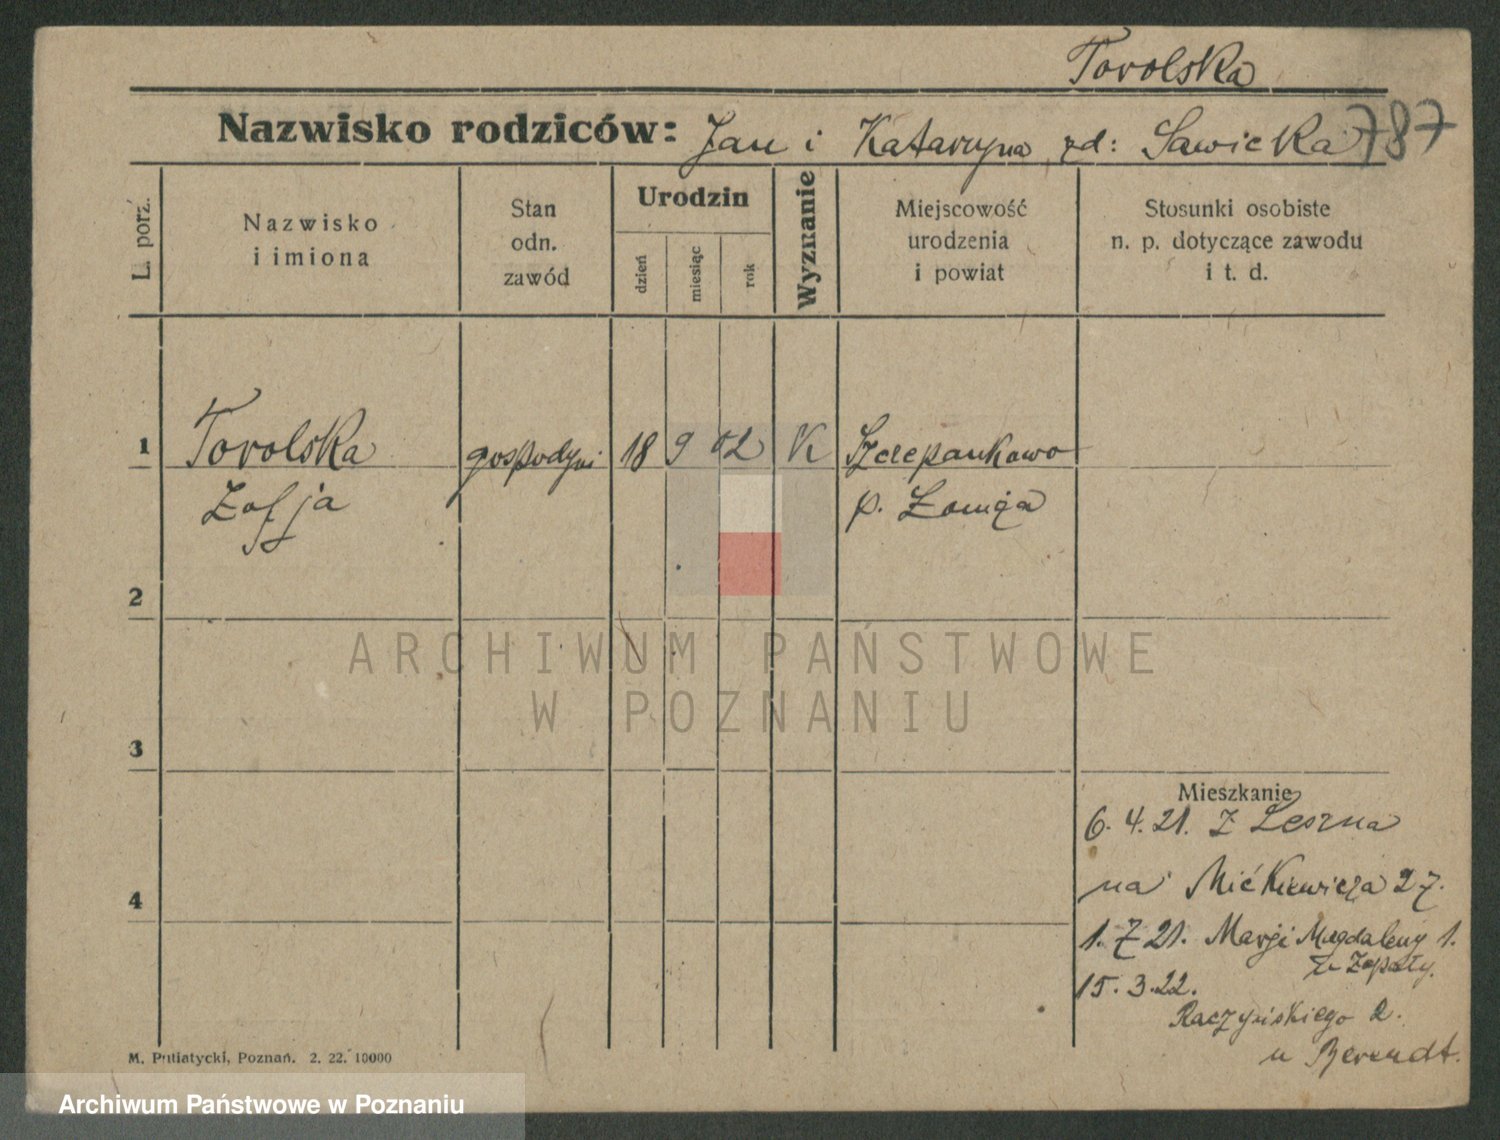 Torolska
Nazwisko rodziców: Jan i Katarzyna zd: Sawicka 787
L. porz.
Nazwisko
i imiona
Stan
odn.
zawód
Urodzin
dzień
miesiąc
rok
Wyznanie
Miejscowość
urodzenia
i powiat
Stosunki osobiste
n. p. dotyczące zawodu
i t. d.
1 Torolska gospodyni 18 9 02 K Szczepankowo
Zofja p. Łomża
2
3
4
Mieszkanie
6. 4. 21. z Leszna
na Mićkiewicza 27.
1. 7 21. Marji Magdaleny 1.
u Zapały.
15. 3. 22.
Raczyńskiego 2.
u Berendt.
M. Putiatycki, Poznań. 2. 22. 10000
ARCHIWUM PAŃSTWOWE
W POZNANIU
Archiwum Państwowe w Poznaniu